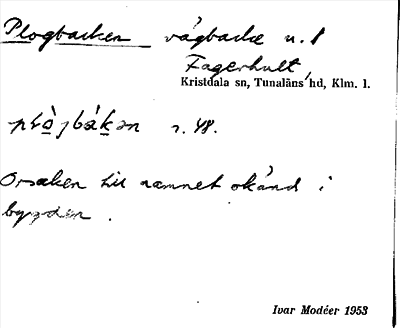 Plogbacken vägbacke n. 1
Fagerhult
Kristdala sn, Tunaläns hd, Klm. l.
r. 48.
Orsaken till namnet okänd i
bygden.
Ivar Modéer 1953